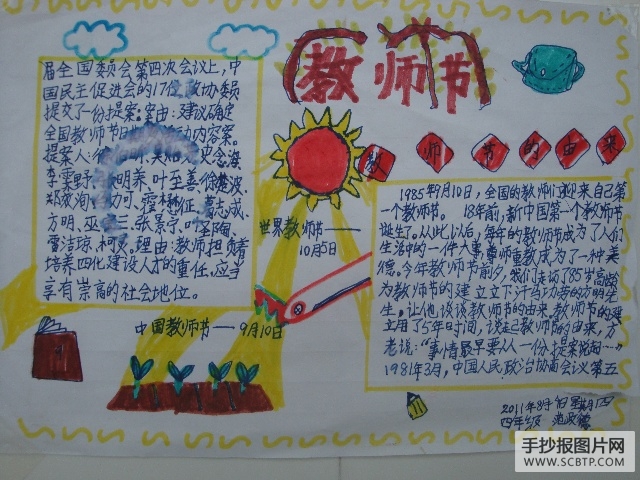 教师节
教师节的由来
届全国委员会第四次会议上,中
国民主促进会的17位政协委员
提交了一份提案。案由:建议确定
全国教师节日
动内容案。
提案人:
李霁野
明养 叶至善
方明、
张景宁 叶
雷洁琼、柯灵。理由:教师担负着
培养四化建设人才的重任,应当
享有崇高的社会地位。
世界教师节——
10月5日
中国教师节——9月10日
1985年9月10日,全国的教师们迎来自己第
一个教师节。 18年前,新中国第一个教师节
诞生。从此以后,每年的教师节成为了人们
生活中的一件大事尊师重教成为了一种美
德。今年教师节前夕,我们走访了85岁高龄
为教师节的建立立下汗马功劳的方明先
生。让他谈谈教师节的由来。教师节的建
立用了5年时间,谈起教师节的由来,方
老说:“事情最早要从一份提案说起……”
1981年3月,中国人民政治协商会议第五
2011年8月
四年级
手抄报图片网
WWW.SCBTP.COM